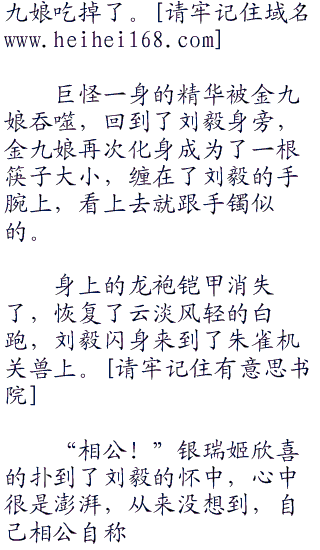 九娘吃掉了。[请牢记住域名
www.heihei168.com]
巨怪一身的精华被金九
娘吞噬，回到了刘毅身旁，
金九娘再次化身成为了一根
筷子大小，缠在了刘毅的手
腕上，看上去就跟手镯似
的。
身上的龙袍铠甲消失
了，恢复了云淡风轻的白
跑，刘毅闪身来到了朱雀机
关兽上。[请牢记住有意思书
院]
“相公！”银瑞姬欣喜
的扑到了刘毅的怀中，心中
很是澎湃，从来没想到，自
己相公自称